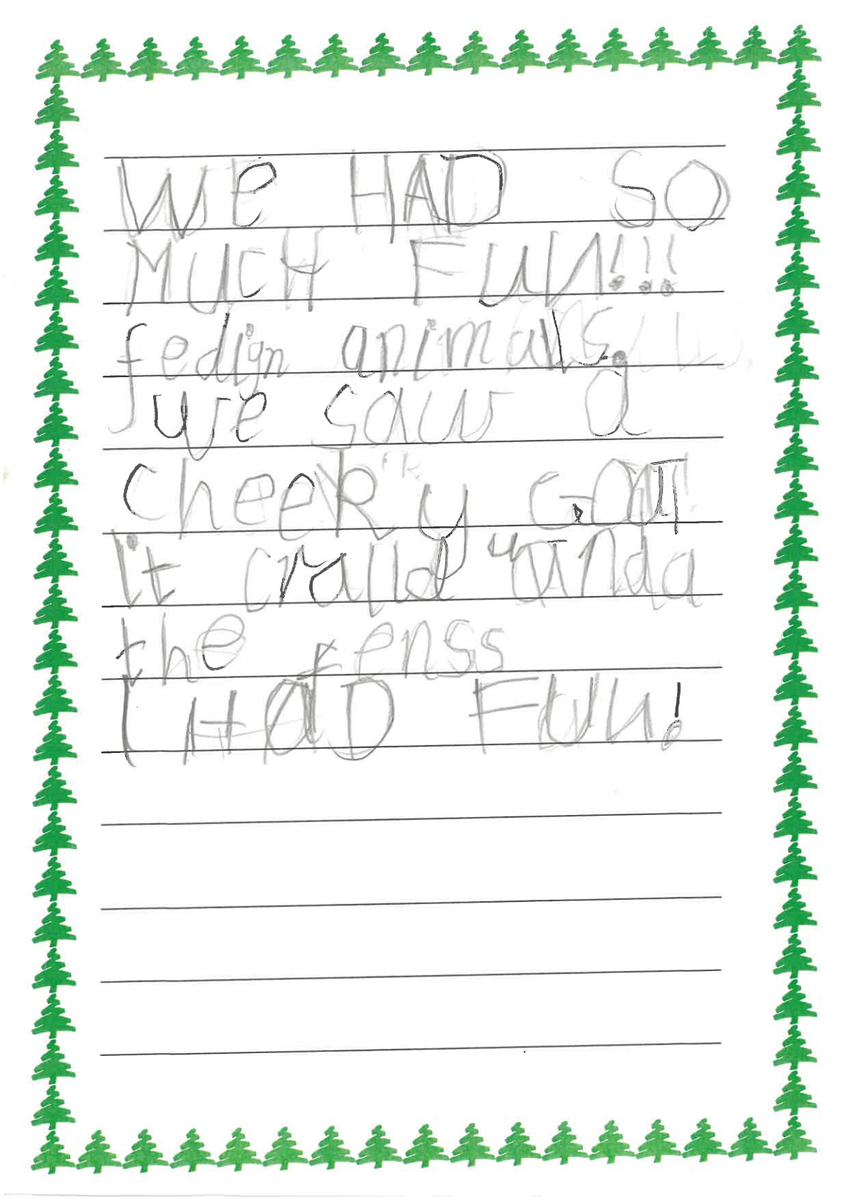 We HAD SO
MUCH FUN!!!
fedign animals.
we saw a
cheeky GOAT
It cralld unda
the fenss
I HaD FUN!